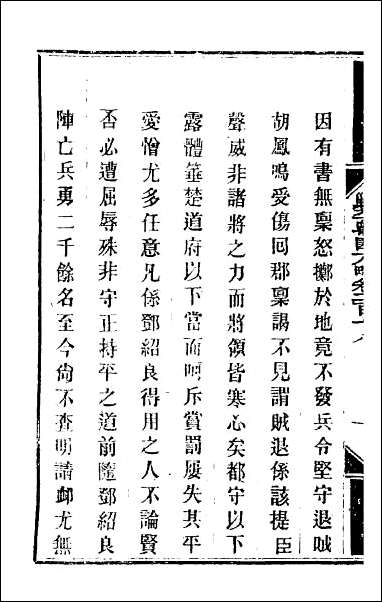 因有書無稟怒擲於地竟不發兵令堅守退賊
胡鳳鳴受傷回郡稟謁不見謂賊退係該提臣
聲威非諸將之力而將領皆寒心矣都守以下
露體箠楚道府以下當面呵斥賞罰屢失其平
愛憎尤多任意凡係鄧紹良得用之人不論賢
否必遭屈辱殊非守正持平之道前隨鄧紹良
陣亡兵勇二千餘名至今尙不查明請卹尤無